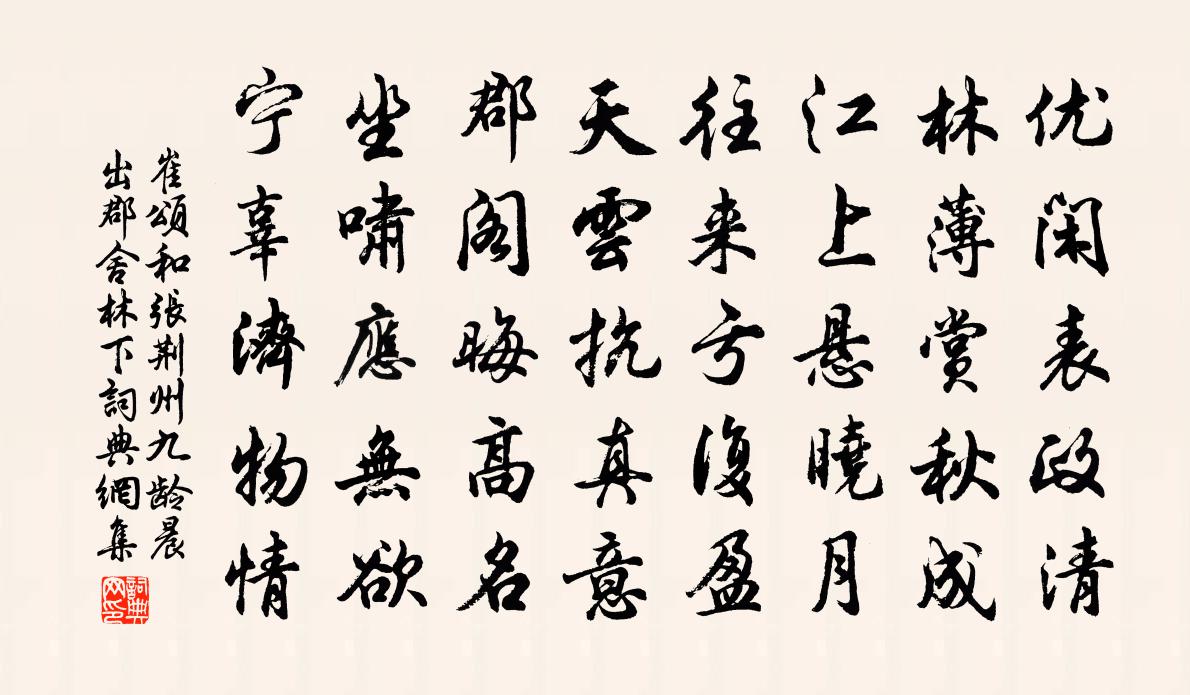 优闲表政清
林薄赏秋成
江上悬曉月
往来亏復盈
天雲抗真意
郡阁晦高名
坐嘯應無欲
宁辜濟物情
崔頌和張荆州九龄晨
出郡舍林下詞典網集
詞典网印